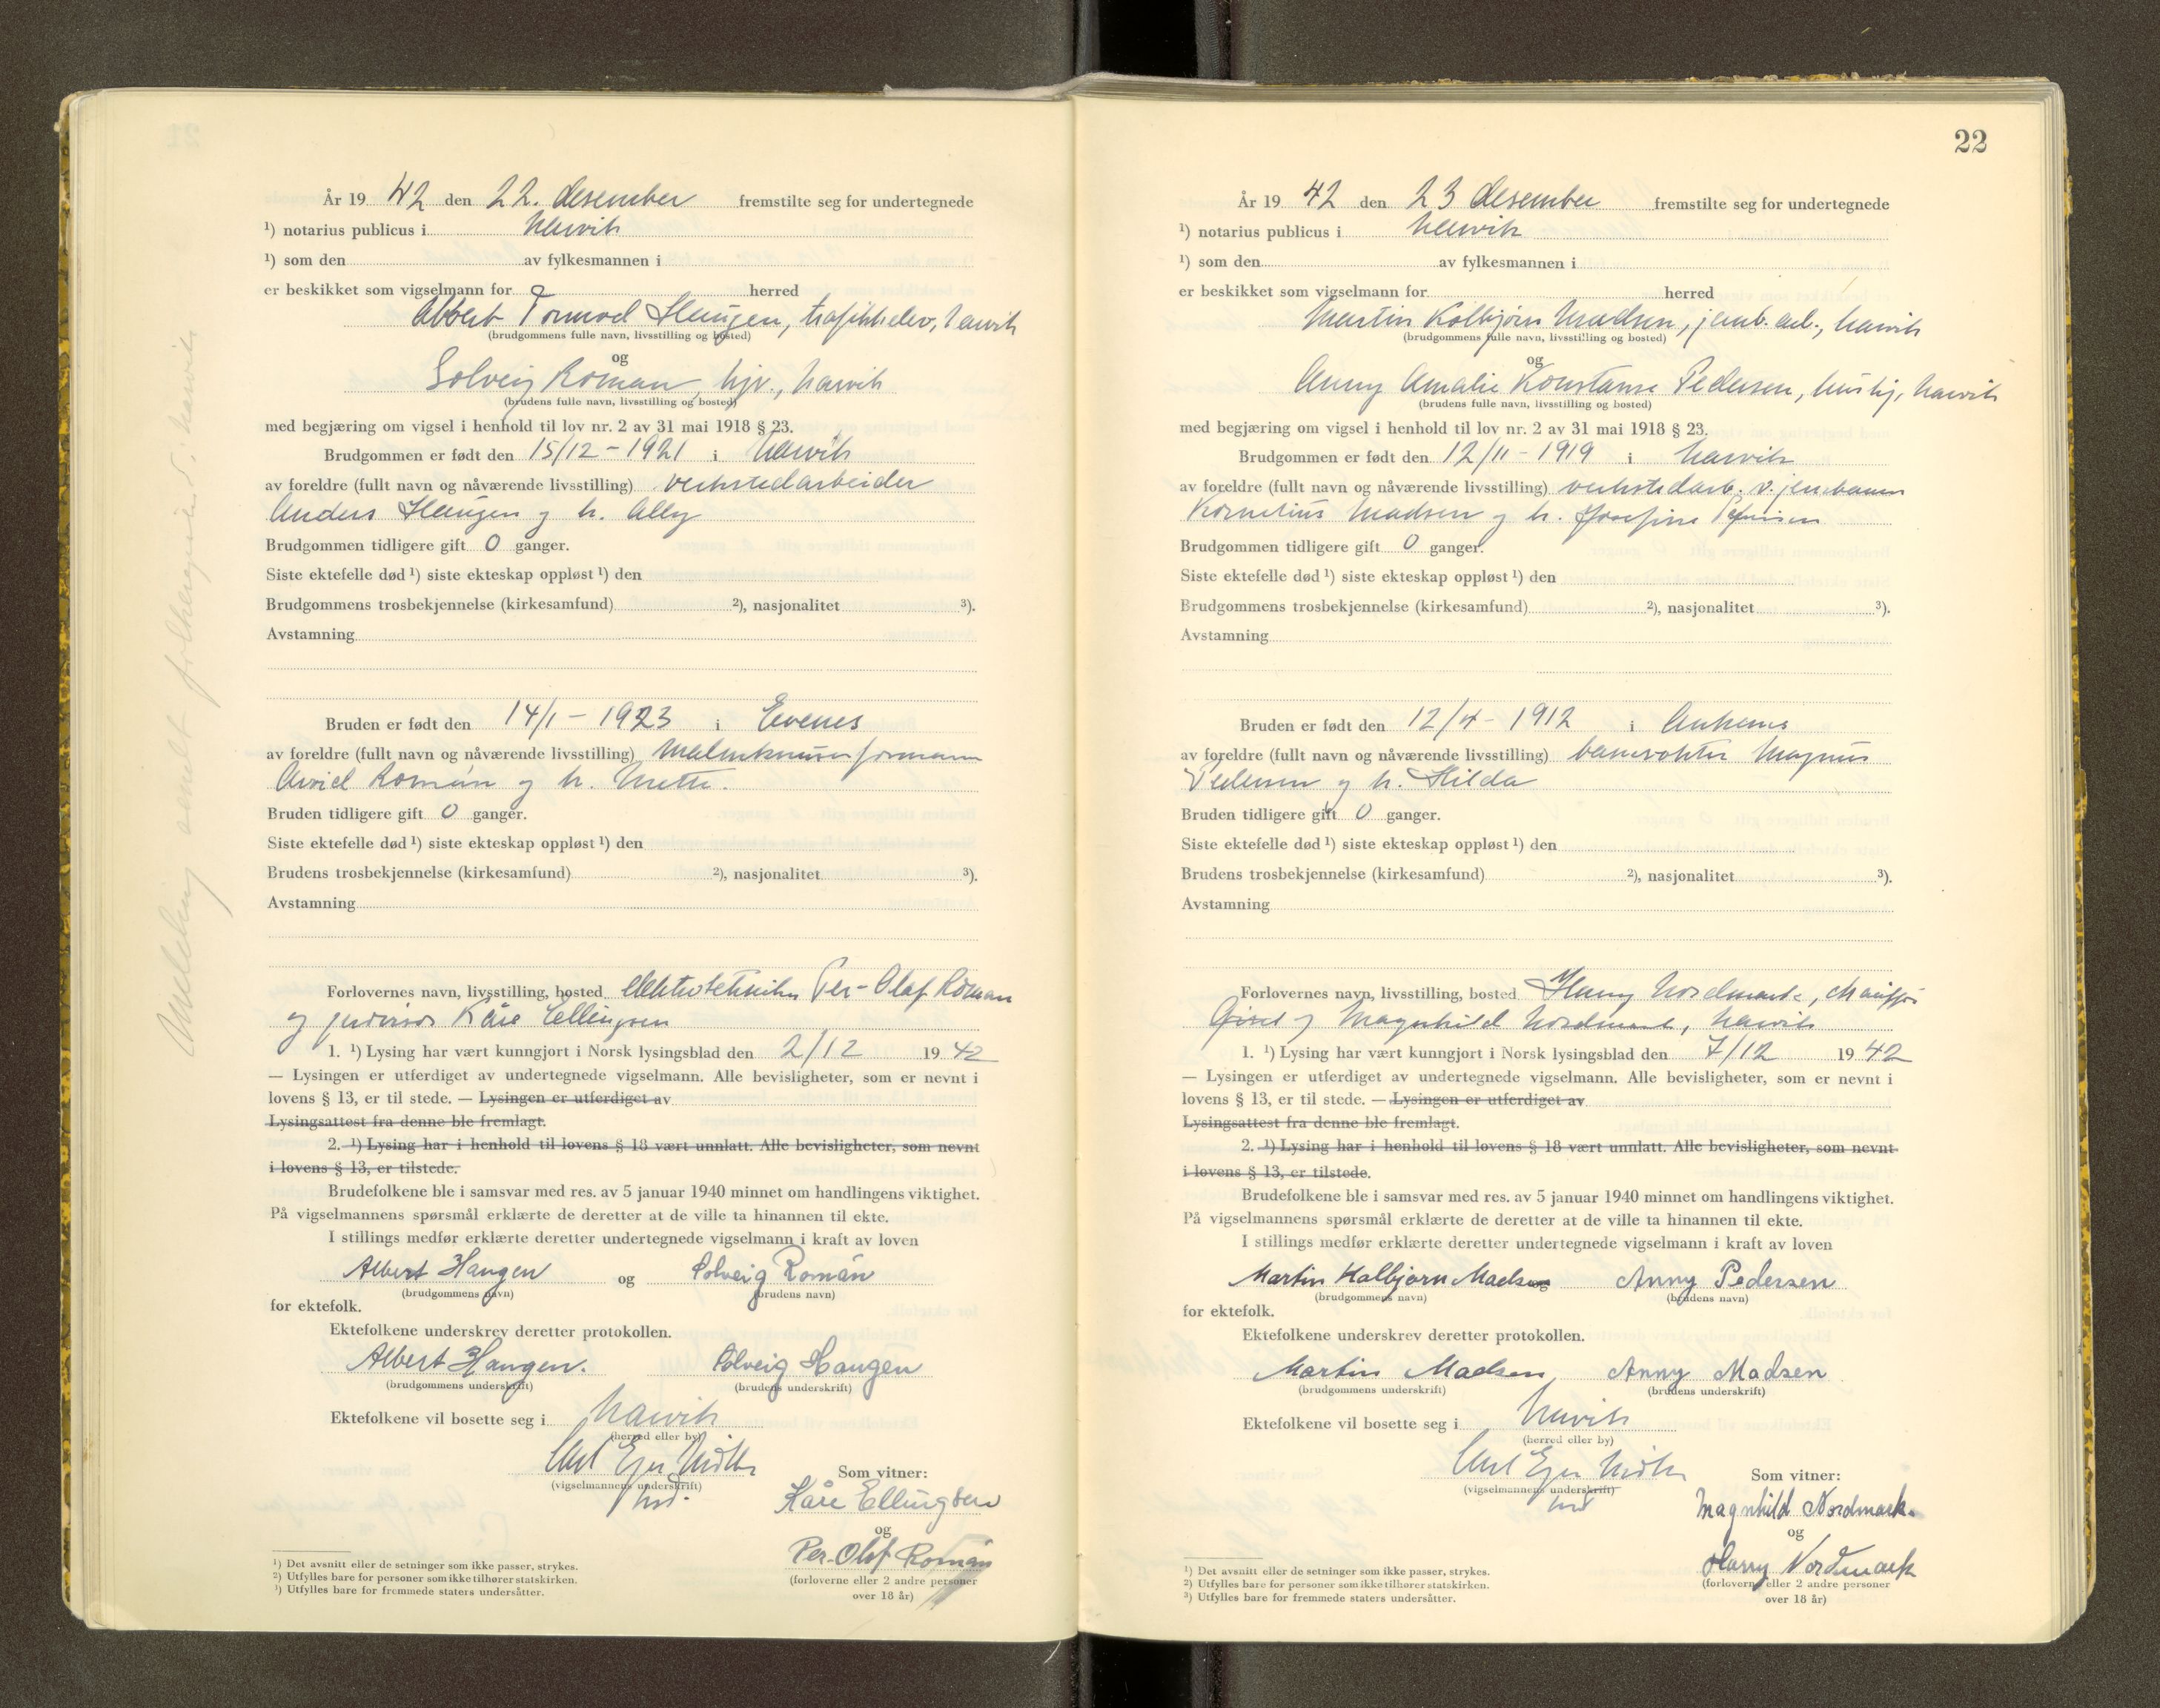 År 19 42 den 22. desember fremstilte seg for undertegnede
¹) notarius publicus i Narvik
¹) som den av fylkesmannen i
er beskikket som vigselmann for herred
Albert Tormod Haugen, trafikkelev, Narvik
(brudgommens fulle navn, livsstilling og bosted)
og
Solveig Roman, hjv., Narvik
(brudens fulle navn, livsstilling og bosted)
med begjæring om vigsel i henhold til lov nr. 2 av 31 mai 1918 § 23.
Brudgommen er født den 15/12 - 1921 i Narvik
av foreldre (fullt navn og nåværende livsstilling) verkstedarbeider
Anders Haugen og h. Ally
Brudgommen tidligere gift 0 ganger.
Siste ektefelle død ¹) siste ekteskap oppløst ¹) den
Brudgommens trosbekjennelse (kirkesamfund) ²), nasjonalitet ³).
Avstamning
Bruden er født den 14/1 - 1923 i Evenes
av foreldre (fullt navn og nåværende livsstilling) formann
Arvid Román og h. Mette.
Bruden tidligere gift 0 ganger.
Siste ektefelle død ¹) siste ekteskap oppløst ¹) den
Brudens trosbekjennelse (kirkesamfund) ²), nasjonalitet ³).
Avstamning
Forlovernes navn, livsstilling, bosted elektrotekniker Per-Olaf Roman
og Kåre Ellingsen
1. ¹) Lysing har vært kunngjort i Norsk lysingsblad den 2/12 19 42
— Lysingen er utferdiget av undertegnede vigselmann. Alle bevisligheter, som er nevnt i
lovens § 13, er til stede. — Lysingen er utferdiget av
Lysingsattest fra denne ble fremlagt.
2. ¹) Lysing har i henhold til lovens § 18 vært unnlatt. Alle bevisligheter, som nevnt
i lovens § 13, er tilstede.
Brudefolkene ble i samsvar med res. av 5 januar 1940 minnet om handlingens viktighet.
På vigselmannens spørsmål erklærte de deretter at de ville ta hinannen til ekte.
I stillings medfør erklærte deretter undertegnede vigselmann i kraft av loven
Albert Haugen og Solveig Román
(brudgommens navn) (brudens navn)
for ektefolk.
Ektefolkene underskrev deretter protokollen.
Albert Haugen. Solveig Haugen
(brudgommens underskrift) (brudens underskrift)
Ektefolkene vil bosette seg i Narvik
(herred eller by)
(vigselmannens underskrift)
Som vitner:
Kåre Ellingsen
og
Per-Olof Román
(forloverne eller 2 andre personer
over 18 år)
¹) Det avsnitt eller de setninger som ikke passer, strykes.
²) Utfylles bare for personer som ikke tilhører statskirken.
³) Utfylles bare for fremmede staters undersåtter.
22
År 19 42 den 23 desember fremstilte seg for undertegnede
¹) notarius publicus i Narvik
¹) som den av fylkesmannen i
er beskikket som vigselmann for herred
Martin Kolbjørn Madsen, jernb. arb., Narvik
(brudgommens fulle navn, livsstilling og bosted)
og
Anny Amalie Konstanse Pedersen, hushj., Narvik
(brudens fulle navn, livsstilling og bosted)
med begjæring om vigsel i henhold til lov nr. 2 av 31 mai 1918 § 23.
Brudgommen er født den 12/11 - 1919 i Narvik
av foreldre (fullt navn og nåværende livsstilling) verkstedarb. v. jernbanen
Kornelius Madsen og h. Josefine
Brudgommen tidligere gift 0 ganger.
Siste ektefelle død ¹) siste ekteskap oppløst ¹) den
Brudgommens trosbekjennelse (kirkesamfund) ²), nasjonalitet ³).
Avstamning
Bruden er født den 12/4 - 1912 i Ankenes
av foreldre (fullt navn og nåværende livsstilling) banevokter Magnus
Pedersen og h. Hilda
Bruden tidligere gift 0 ganger.
Siste ektefelle død ¹) siste ekteskap oppløst ¹) den
Brudens trosbekjennelse (kirkesamfund) ²), nasjonalitet ³).
Avstamning
Forlovernes navn, livsstilling, bosted Harry Nordmark,
og Magnhild Nordmark, Narvik
1. ¹) Lysing har vært kunngjort i Norsk lysingsblad den 7/12 19 42
— Lysingen er utferdiget av undertegnede vigselmann. Alle bevisligheter, som er nevnt i
lovens § 13, er til stede. — Lysingen er utferdiget av
Lysingsattest fra denne ble fremlagt.
2. ¹) Lysing har i henhold til lovens § 18 vært unnlatt. Alle bevisligheter, som nevnt
i lovens § 13, er tilstede.
Brudefolkene ble i samsvar med res. av 5 januar 1940 minnet om handlingens viktighet.
På vigselmannens spørsmål erklærte de deretter at de ville ta hinannen til ekte.
I stillings medfør erklærte deretter undertegnede vigselmann i kraft av loven
Martin Kolbjørn Madsen Anny Pedersen
(brudgommens navn) (brudens navn)
for ektefolk.
Ektefolkene underskrev deretter protokollen.
Martin Madsen Anny Madsen
(brudgommens underskrift) (brudens underskrift)
Ektefolkene vil bosette seg i Narvik
(herred eller by)
(vigselmannens underskrift)
Som vitner:
Magnhild Nordmark.
og
Harry Nordmark
(forloverne eller 2 andre personer
over 18 år)
¹) Det avsnitt eller de setninger som ikke passer, strykes.
²) Utfylles bare for personer som ikke tilhører statskirken.
³) Utfylles bare for fremmede staters undersåtter.